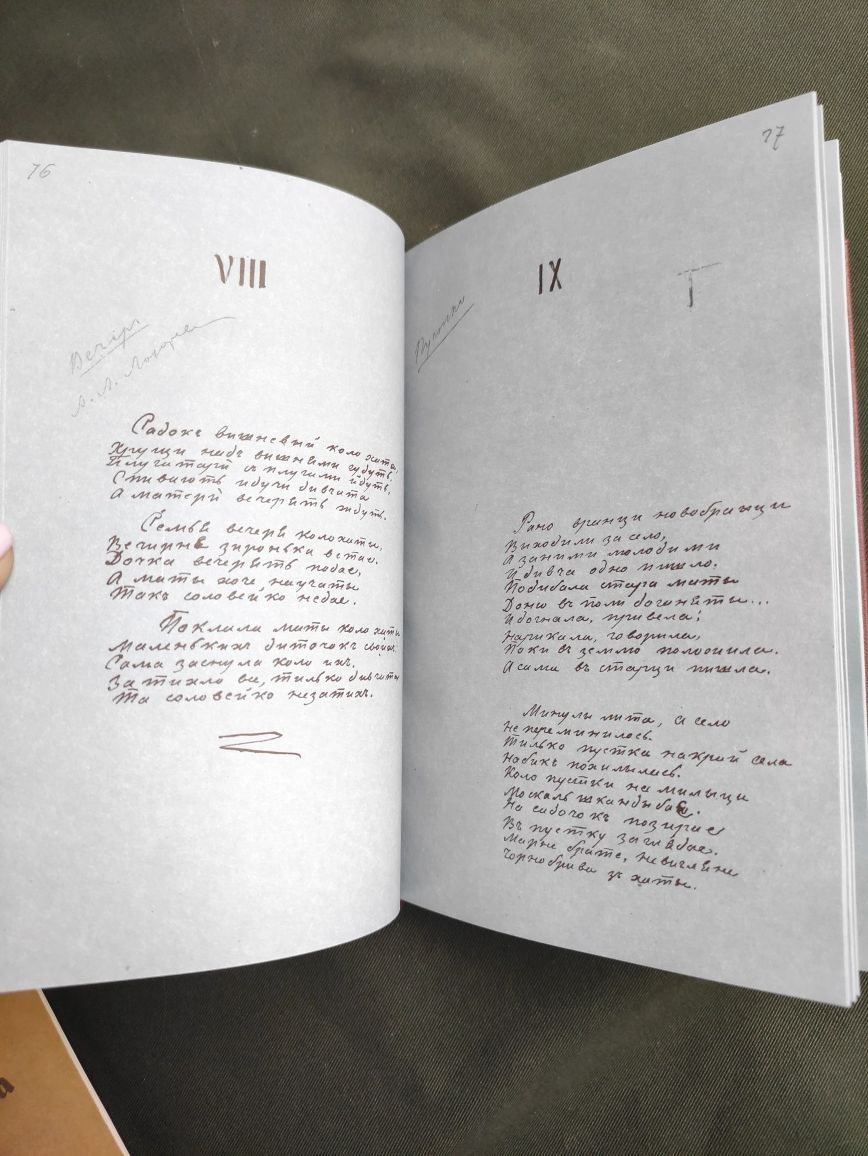 76
VIII
Вечір.
Садокъ вишневый коло хаты,
Хрущи надъ вишнями гудуть.
Плугатари съ плугами йдуть,
Спивають идучи дивчата
А матери вечерять ждуть.
Семья вечеря коло хаты,
Вечирня зиронька встае.
Дочка вечерять подае,
А маты хоче научаты
Такъ соловейко недае.
Поклала маты коло хаты
Маленькихъ диточокъ своихъ
Сама заснула коло ихъ.
Затихло все, тилько дивчата
Та соловейко незатихъ.
17
IX
Т
Рано вранци новобранци
Виходили за село,
А заними молодими
И дивча одно пишло.
Подибала стара маты
Доню въ поли доганяты...
И догнала, привела;
Нарикала, говорила,
Поки въ землю положила.
А сама въ старци пишла.
Минули лита, а село
Не переминилось.
Тилько пустка накраи села
Набикъ похилилась.
Коло пустки на милыци
Москаль шкандыбае.
На садочокъ позирае
Въ пустку заглядае.
Марне брате, невигляне
Чорнобрива зъ хаты.